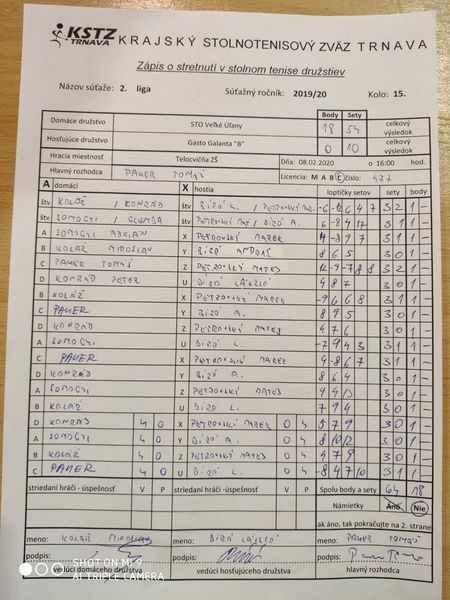 KSTZ TRNAVA KRAJSKÝ STOLNOTENISOVÝ ZVÄZ TRNAVA
Zápis o stretnutí v stolnom tenise družstiev
Názov súťaže: 2. liga Súťažný ročník: 2019/20 Kolo: 15.
Body Sety
Domáce družstvo STO Veľké Úľany 18 54 celkový výsledok
Hosťujúce družstvo Gasto Galanta "B" 0 10 celkový výsledok
Hracia miestnosť Telocvičňa ZŠ Dňa: 08.02.2020 o 16:00 hod.
Hlavný rozhodca PAUER TOMÁŠ Licencia: M A B C číslo: 477
A domáci X hostia loptičky setov sety body
štv KOLÁŘ / KONRÁD štv BÍRÓ L. / PETROVSKÝ 3 2 1 -
štv SOMOGYI / štv PETROVSKÝ / BÍRÓ A. 3 1 1 -
A SOMOGYI ADRIAN X PETROVSKÝ MAREK 4 -8 9 7 3 1 1 -
B KOLÁŘ MIROSLAV Y BÍRÓ 8 6 5 3 0 1 -
C PAUER TOMÁŠ Z PETROVSKÝ MATEJ 3 2 1 -
D KONRÁD PETER U BÍRÓ LÁSZLÓ 4 8 7 3 0 1 -
B KOLÁŘ X PETROVSKÝ MAREK -9 6 6 8 3 1 1 -
C PAUER Y BÍRÓ A. 8 9 5 3 0 1 -
D KONRÁD Z PETROVSKÝ MATEJ 4 7 6 3 0 1 -
A SOMOGYI U BÍRÓ L. -7 9 4 3 3 1 1 -
C PAUER X PETROVSKÝ MAREK 4 -8 6 7 3 1 1 -
D KONRÁD Y BÍRÓ A. 8 6 4 3 0 1 -
A SOMOGYI Z PETROVSKÝ MATEJ 3 0 1 -
B KOLÁŘ U BÍRÓ L. 7 9 4 3 0 1 -
D KONRÁD 4 0 X PETROVSKÝ MAREK 0 4 5 7 9 3 0 1 -
A SOMOGYI 4 0 Y BÍRÓ A. 0 4 8 10 2 3 0 1 -
B KOLÁŘ 4 0 Z PETROVSKÝ MATEJ 0 4 4 7 9 3 0 1 -
C PAUER 4 0 U BÍRÓ L. 0 4 -8 4 7 10 3 1 1 -
striedaní hráči - úspešnosť V P striedaní hráči - úspešnosť V P Spolu body a sety 64 18
Námietky Áno Nie
ak áno, tak pokračujte na 2. strane
meno: KOLÁŘ MIROSLAV meno: BÍRÓ LÁSZLÓ meno: PAUER TOMÁŠ
podpis: podpis: podpis:
vedúci domáceho družstva vedúci hosťujúceho družstva hlavný rozhodca
SHOT ON MI 9
AI TRIPLE CAMERA